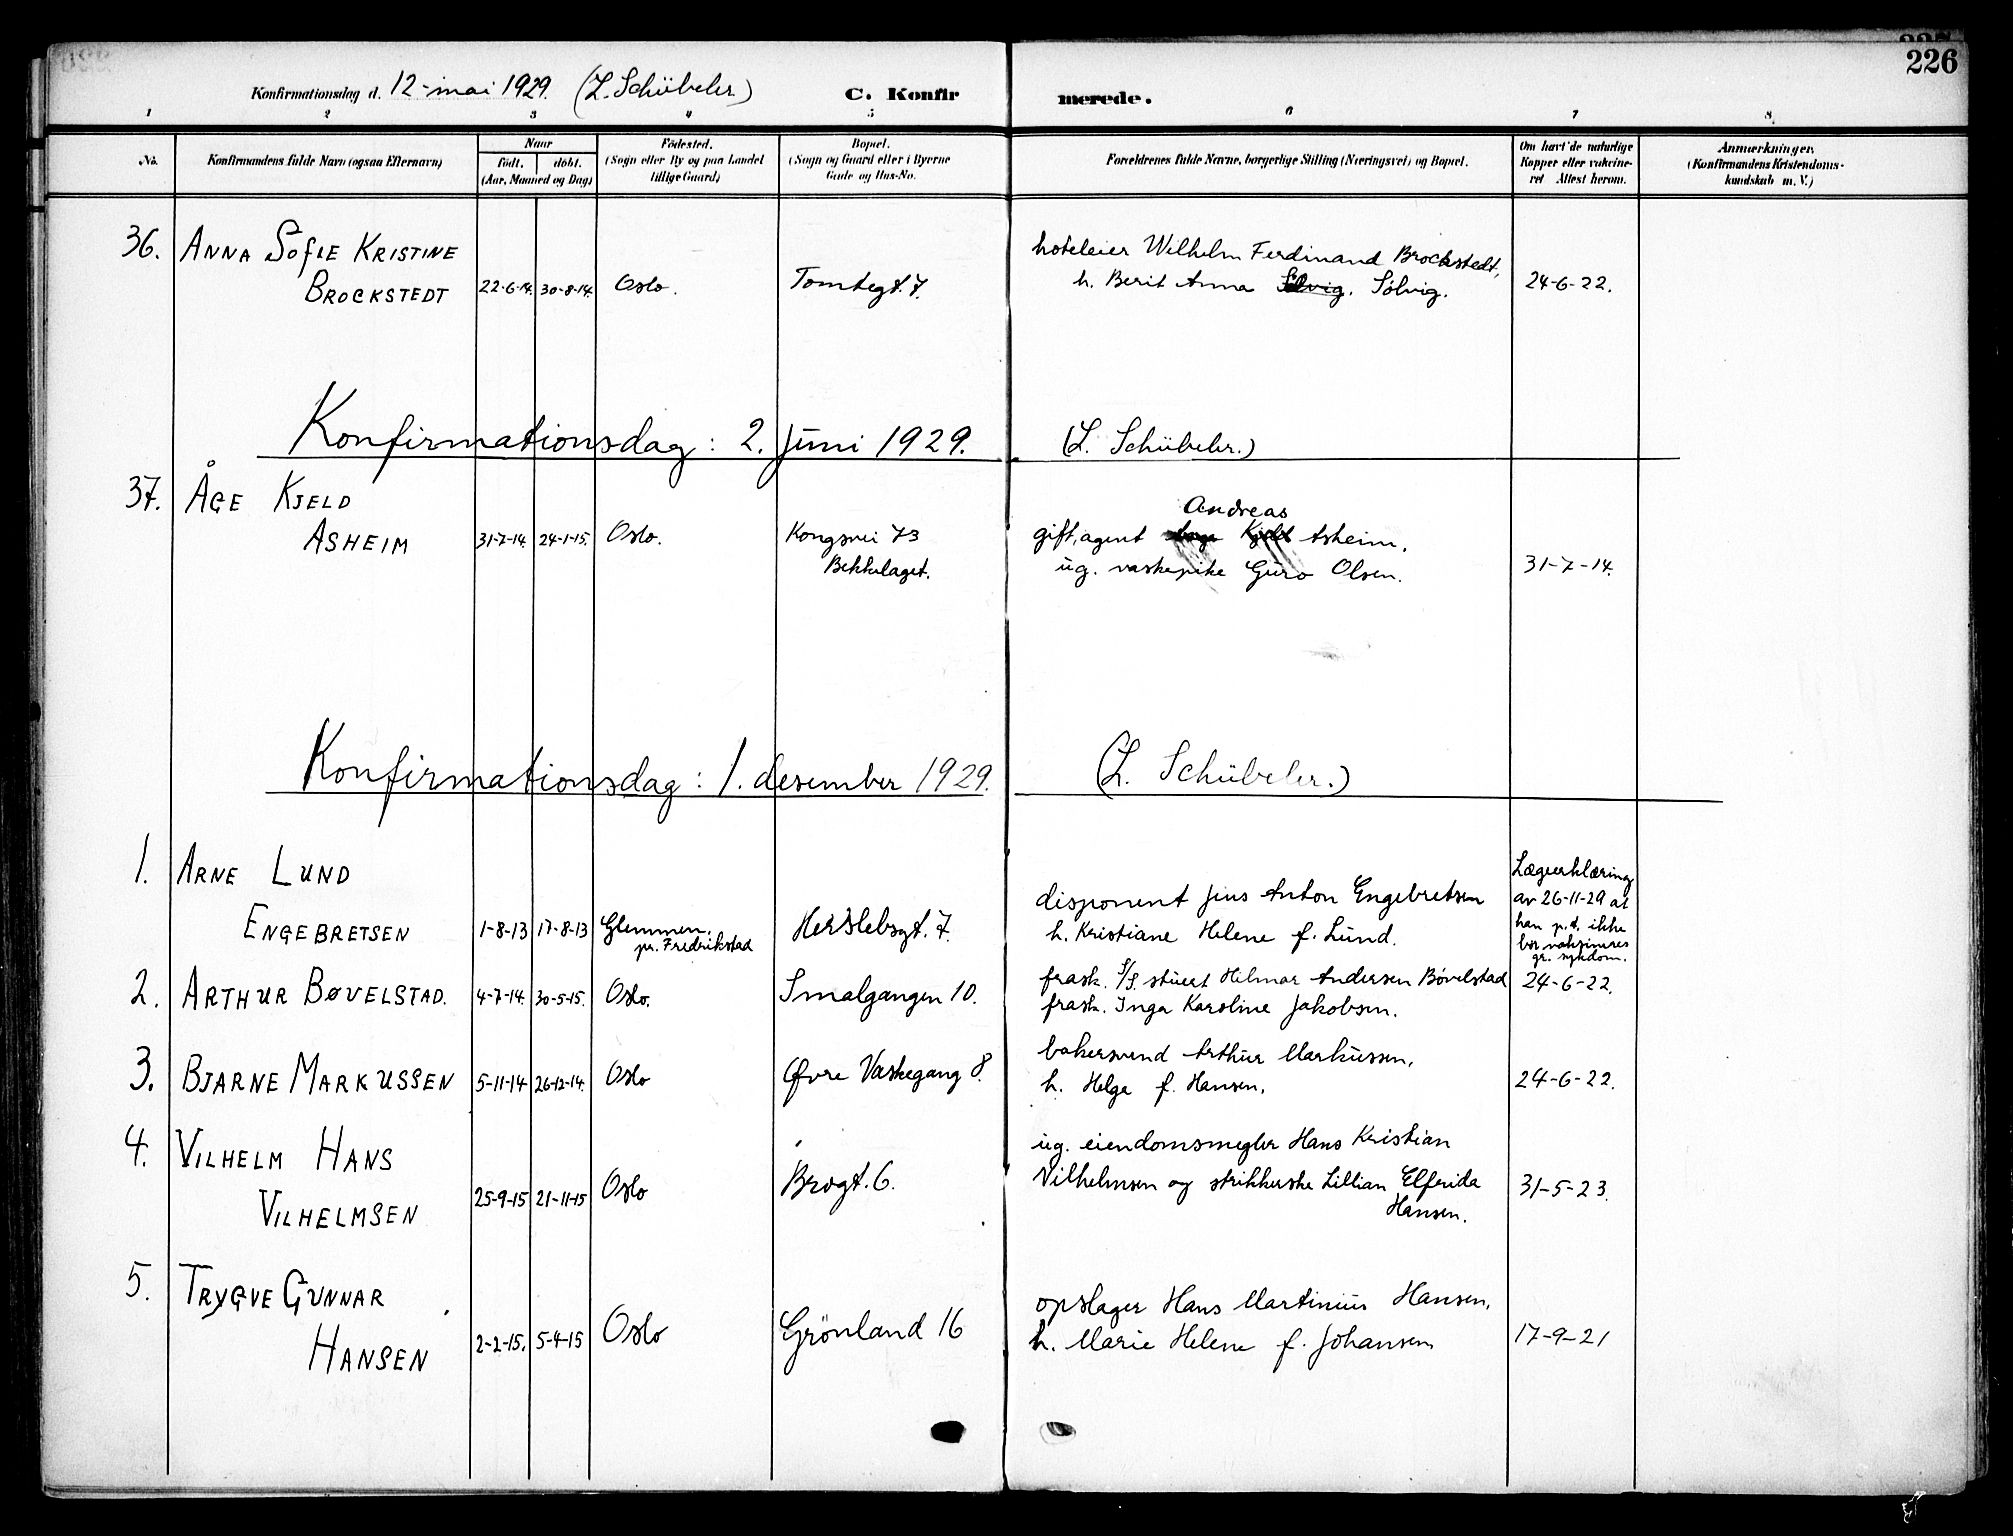 226
Konfirmationsdag d. 12-mai 1929. (L. Schübeler)
C. Konfirmerede.
1 2 3 4 5 6 7 8
No.
Konfirmandens fulde Navn (ogsaa Efternavn)
Naar
født. døbt.
(Aar, Maaned og Dag)
Fødested.
(Sogn eller By og paa Landet
tillige Gaard)
Bopæl.
(Sogn og Gaard eller i Byerne
Gade og Hus-No.
Forældrenes fulde Navne, borgerlige Stilling (Næringsvei) og Bopæl.
Om havt de naturlige
Kopper eller vakcine-
ret Attest herom.
Anmærkninger.
(Konfirmandens Kristendoms-
kundskab m. V.)
36. ANNA SOFIE KRISTINE
BROCKSTEDT
22-6-14. 30-8-14.
Oslo.
Tomtegt. 7.
hoteleier Wilhelm Ferdinand Brockstedt,
h. Berit Anna Sølvig. Sølvig.
24-6-22.
Konfirmationsdag: 2. juni 1929. (L. Schübeler.)
37. ÅGE KJELD
ASHEIM
31-7-14. 24-1-15.
Oslo.
Kongsvei 73
Bekkelaget.
Andreas
gift, agent Aage Kjeld Asheim,
ug. vaskepike Guro Olsen.
31-7-14.
Konfirmationsdag: 1. desember 1929. (L. Schübeler.)
1. ARNE LUND
ENGEBRETSEN
1-8-13 17-8-13
Glemmen.
pr. Fredrikstad
Herslebsgt. 7.
disponent Jens Anton Engebretsen
h. Kristiane Helene f. Lund.
Lægeerklæring
av 26-11-29 at
han p.t. ikke
bør vaksineres
gr. sykdom.
2. ARTHUR BØVELSTAD. 4-7-14. 30-5-15. Oslo. Smalgangen 10.
frask. S/S. stuert Hilmar Andersen Bøvelstad
frask. Inga Karoline Jakobsen.
24-6-22.
3. BJARNE MARKUSSEN 5-11-14 26-12-14. Oslo Øvre Vaskegang 8.
bakersvend Arthur Markussen,
h. Helga f. Hansen.
24-6-22.
4. VILHELM HANS
VILHELMSEN
25-9-15 21-11-15 Oslo Brogt. 6.
ug. eiendomsmegler Hans Kristian
Vilhelmsen og strikkerske Lillian Elfrida
Hansen.
31-5-23.
5. TRYGVE GUNNAR
HANSEN
2-2-15. 5-4-15 Oslo Grönland 16
opslager Hans Martinius Hansen,
h. Marie Helene f. Johansen
17-9-21